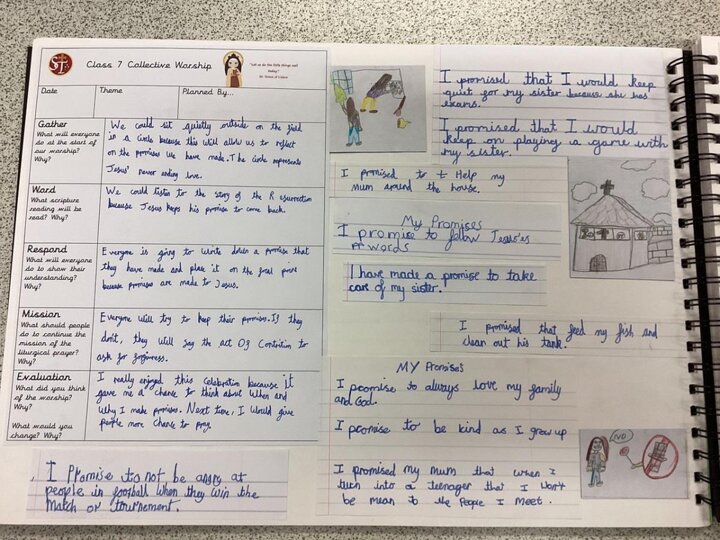 Class 7 Collective Worship
"Let us do the little things well today."
Date
Theme
Planned By...
Gather
What will everyone do at the start of our worship?
Why?
We could sit quietly outside on the field
in a circle because this will allow us to reflect
on the promises we have made. The circle represents
Jesus' never ending love.
Word
What scripture reading will be read? Why?
We could listen to the story of the Resurrection
because Jesus keeps his promise to come back.
Respond
What will everyone do to show their understanding?
Why?
Everyone is going to write down a promise that
they have made and place it on the focal point
because promises are made to Jesus.
Mission
What should people do to continue the mission of the liturgical prayer?
Why?
Everyone will try to keep their promises. If they
don't, they will say the act Of Contrition to
ask for forgivness.
Evaluation
What did you think of the worship?
Why?
What would you change? Why?
I really enjoyed this celebration because it
gave me a chance to think about when and
why I make promises. Next time, I would give
people more chance to pray.
I Promise to not be angry at
people in football when they win the
match or tournement.
I promised that I would keep
quiet for my sister because she has
exams.
I promised that I would
keep on playing a game with
my sister.
I promised to Help my
mum around the house.
My Promises
I promise to follow Jesus'es
words
I have made a promise to take
care of my sister.
I promised that feed my fish and
clean out his tank.
MY Promises
I promise to always love my family
and God.
I promise to be kind as I grow up
I promised my mum that when I
turn into a teenager that I won't
be mean to the people I meet.
NO